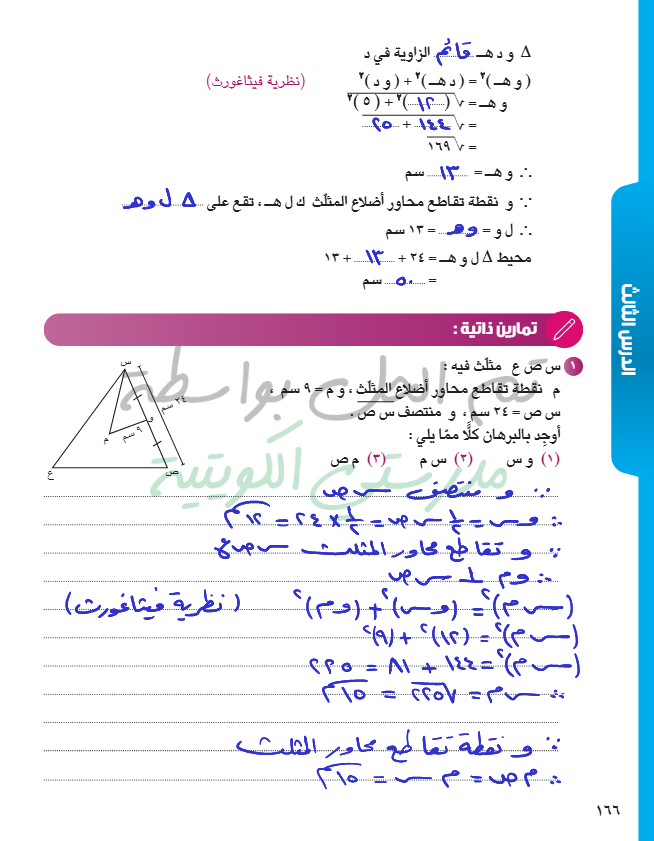 Δ و د هـ قائم الزاوية في د
( و هـ )² = ( د هـ )² + ( و د )² (نظرية فيثاغورث)
و هـ = √( ١٢ )² + ( ٥ )²
= √ ١٤٤ + ٢٥
= √ ١٦٩
∴ و هـ = ١٣ سم
∵ و نقطة تقاطع محاور أضلاع المثلّث ك ل هـ، تقع على Δ ل و هـ
∴ ل و = و هـ = ١٣ سم
محيط Δ ل و هـ = ٢٤ + ١٣ + ١٣
= ٥٠ سم
الدرس الثالث
تمارين ذاتية :
١ س ص ع مثلّث فيه :
م نقطة تقاطع محاور أضلاع المثلّث ، و م = ٩ سم ،
س ص = ٢٤ سم ، و منتصف س ص .
أوجِد بالبرهان كلًّا ممّا يلي :
(١) و س (٢) س م (٣) م ص
س
٢٤ سم
و
٩ سم
م
ع
ص
قم الحل بواسطة
مدرستي الكويتية
∵ و منتصف س ص
∴ و س = ١/٢ س ص = ١/٢ × ٢٤ = ١٢ سم
∵ و تقاطع محاور المثلث س ص ع
∴ و م ⊥ س ص
(س م)² = (و س)² + (و م)² (نظرية فيثاغورث)
(س م)² = (١٢)² + (٩)²
(س م)² = ١٤٤ + ٨١ = ٢٢٥
∴ س م = √٢٢٥ = ١٥ سم
∵ و نقطة تقاطع محاور المثلث
∴ م ص = م س = ١٥ سم
١٦٦